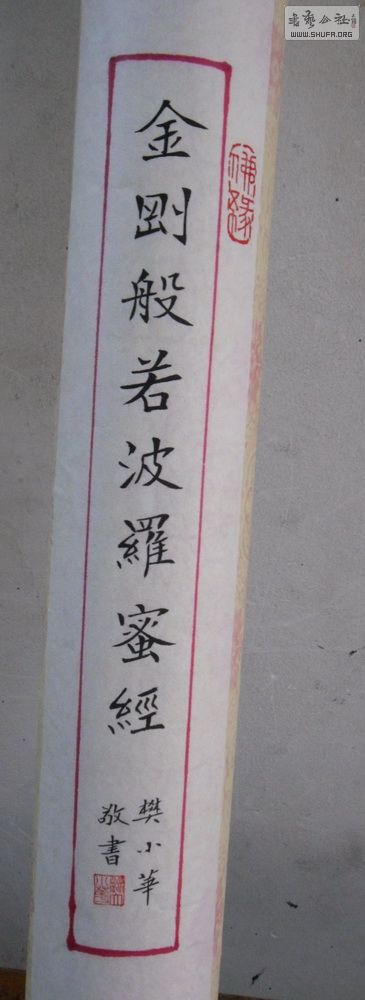 金剛般若波羅蜜經
樊小華
敬書
佛緣
書艺公社
WWW.SHUFA.ORG